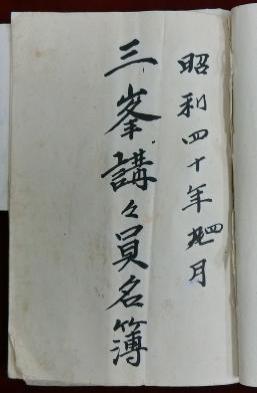 昭和四十年四月
三峯講々員名簿